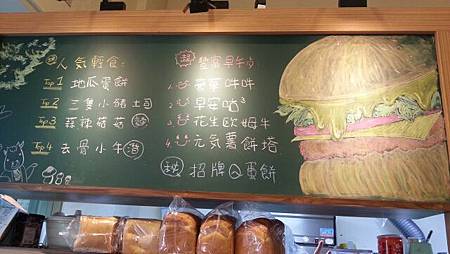 人気輕食:
Top1 地瓜蛋餅
Top2 三隻小豬土司
Top3 蒜辣菇菇
Top4 去骨小牛
豐富早午
1. 豪華咔咔
2. 早安喵
3. 花生歐姆牛
4. 元気薯餅塔
招牌Q蛋餅